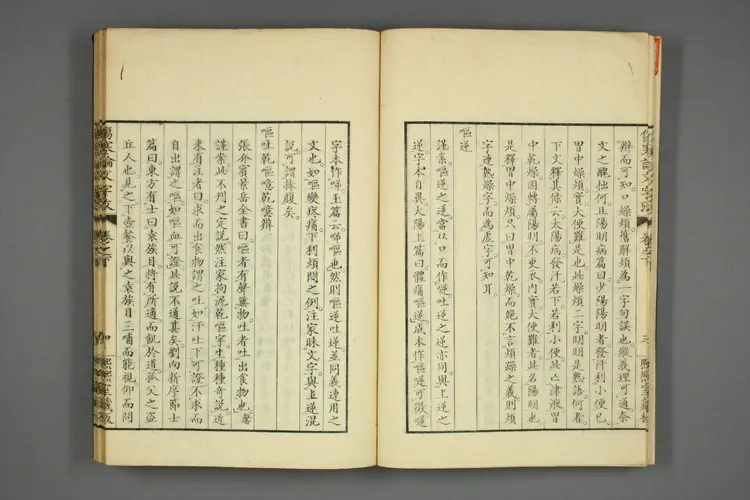 辨而可知口燥煩舊解煩為一字句誤也縱義理可通奈
文之醜拙何且陽明病篇曰少陽陽明者發汗利小便已
胃中燥煩實大便難是也此燥煩二字明明是熟語何者
下文釋其條云太陽病發汗若下若利小便此亡津液胃
中乾燥因轉屬陽明不更衣內實大便難者此名陽明也
是釋胃中燥煩只曰胃中乾燥而絕不言煩躁之義則煩
字連熟燥字而為虛字可知耳
嘔逆
謹案嘔逆之逆當从口而作㖕吐逆之逆亦同與上逆之
逆字本自異太陽上篇曰體痛嘔逆成本作嘔㖕可徵㖕
字本作啼玉篇云啼嘔也然則嘔逆吐逆並同義連用之
文也如嘔變疼痛下利煩悶之例注家昧文字與上逆混
說可謂捧腹矣
嘔吐乾嘔噫乾噫辨
張介賓景岳全書曰嘔者有聲無物吐者吐出食物也馨
謹案此不刊之定說然注家拘泥乾嘔字生種種奇說道
來有注者曰求而出食物謂之吐如汗吐下可證不求而
自出謂之嘔如嘔家可證此說不通甚矣劉向新序節士
篇曰東方有士曰袁族目將有所適而飢於道孤父之盜
丘人也見之下壺餐以與之袁族目三餔而能視仰而問
傷寒論文字攷
卷之下
熙熙室藏板